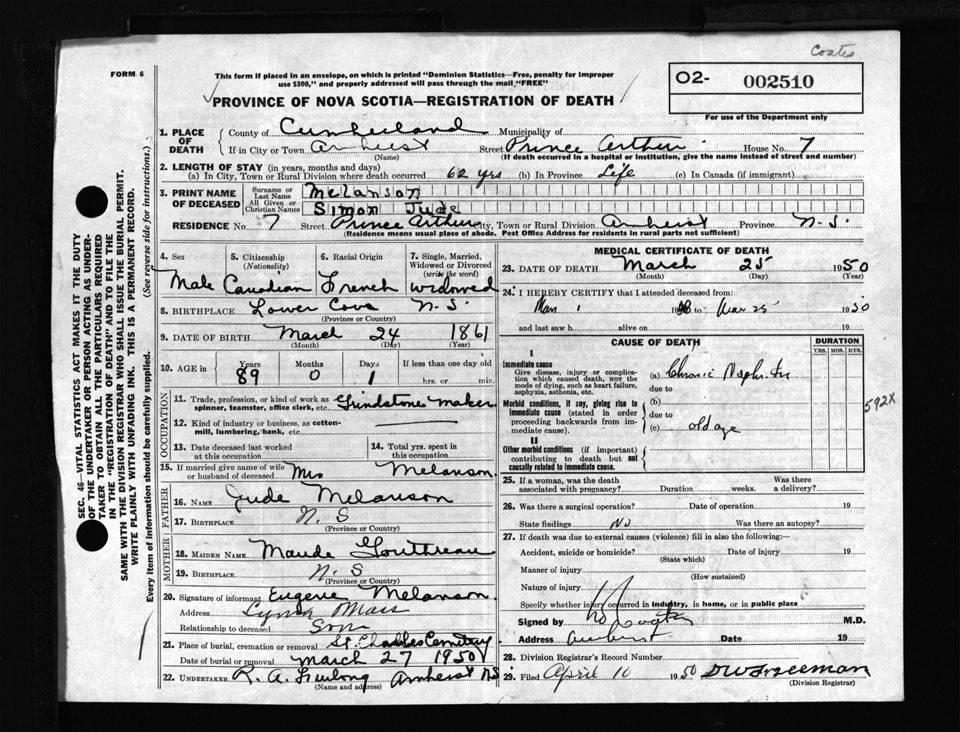 Coates
FORM 6
This form if placed in an envelope, on which is printed "Dominion Statistics—Free, penalty for improper
use $300," and properly addressed will pass through the mail "FREE"
O2- 002510
For use of the Department only
PROVINCE OF NOVA SCOTIA—REGISTRATION OF DEATH
1. PLACE OF DEATH
County of Cumberland Municipality of
If in City or Town Amherst Street Prince Arthur House No. 7
(Name) (If death occurred in a hospital or institution, give the name instead of street and number)
2. LENGTH OF STAY (in years, months and days)
(a) In City, Town or Rural Division where death occurred 62 yrs (b) In Province Life (c) In Canada (if immigrant)
3. PRINT NAME OF DECEASED
Surname or Last Name Melanson
All Given or Christian Names Simon Jude
RESIDENCE No. 7 Street Prince Arthur City, Town or Rural Division Amherst Province N.S.
(Residence means usual place of abode. Post Office Address for residents in rural parts not sufficient)
4. Sex 5. Citizenship (Nationality) 6. Racial Origin 7. Single, Married, Widowed or Divorced (write the word)
Male Canadian French widowed
8. BIRTHPLACE Lower Cove N.S.
(Province or Country)
9. DATE OF BIRTH March 24 1861
(Month) (Day) (Year)
10. AGE in Years Months Days If less than one day old
89 0 1 hrs. or min.
OCCUPATION
11. Trade, profession, or kind of work as spinner, teamster, office clerk, etc. Grindstone maker
12. Kind of industry or business, as cotton-mill, lumbering, bank, etc.
13. Date deceased last worked at this occupation 14. Total yrs. spent in this occupation
15. If married give name of wife or husband of deceased Mrs Melanson.
FATHER
16. NAME Jude Melanson
17. BIRTHPLACE N.S
(Province or Country)
MOTHER
18. MAIDEN NAME Maude Gouthreau
19. BIRTHPLACE N.S
(Province or Country)
20. Signature of informant Eugene Melanson.
Address Lynn Mass
Relationship to deceased Son
21. Place of burial, cremation or removal St. Charles Cemetery
Date of burial or removal March 27 1950
22. UNDERTAKER R. A. Furlong Amherst NS
(Name and address)
MEDICAL CERTIFICATE OF DEATH
23. DATE OF DEATH March 25 1950
(Month) (Day) (Year)
24. I HEREBY CERTIFY that I attended deceased from:
Mar 1 19 to Mar 25 1950
and last saw h alive on 19
CAUSE OF DEATH DURATION
YRS. MOS. DYS.
I
Immediate cause
Give disease, injury or complication which caused death, NOT the mode of dying, such as heart failure, asphyxia, asthenia, etc.
(a) Chronic Nephritis
due to
Morbid conditions, if any, giving rise to immediate cause (stated in order proceeding backwards from immediate cause).
(b)
due to
(c) old age
592X
II
Other morbid conditions (if important) contributing to death but not causally related to immediate cause.
25. If a woman, was the death associated with pregnancy? Duration weeks. Was there a delivery?
26. Was there a surgical operation? Date of operation 19
State findings No Was there an autopsy?
27. If death was due to external causes (violence) fill in also the following:—
Accident, suicide or homicide? Date of injury 19
(State which)
Manner of injury
(How sustained)
Nature of injury
Specify whether injury occurred in industry, in home, or in public place
Signed by Coates M.D.
Address Amherst Date 19
28. Division Registrar's Record Number
29. Filed April 10 1950 DW Freeman
(Division Registrar)
SEC. 46—VITAL STATISTICS ACT MAKES IT THE DUTY
OF THE UNDERTAKER OR PERSON ACTING AS UNDER-
TAKER TO OBTAIN ALL THE PARTICULARS REQUIRED
IN THE "REGISTRATION OF DEATH" AND TO FILE THE
SAME WITH THE DIVISION REGISTRAR WHO SHALL ISSUE THE BURIAL PERMIT.
WRITE PLAINLY WITH UNFADING INK. THIS IS A PERMANENT RECORD.
Every item of information should be carefully supplied. (See reverse side for instructions.)